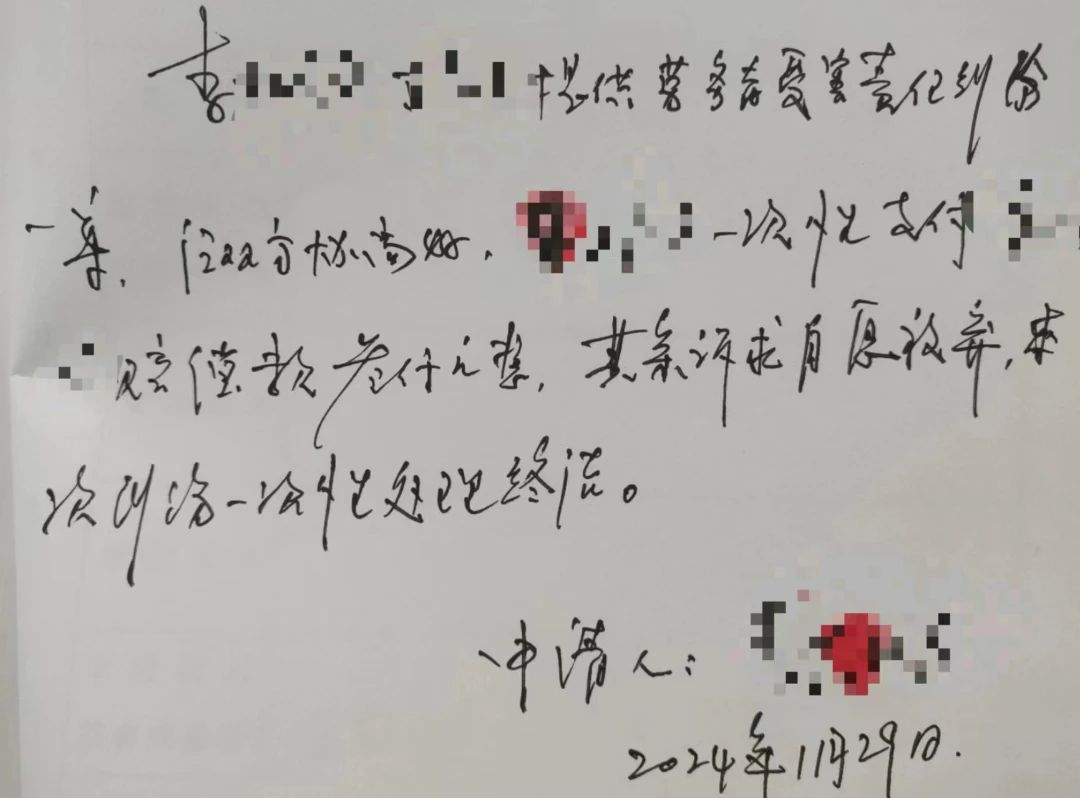 李 提供劳务者受害责任纠纷
一案,经双方协商好, 一次性支付
赔偿款叁仟元整,其余诉求自愿放弃,本
次纠纷一次性处理终结。
申请人:
2024年11月29日.